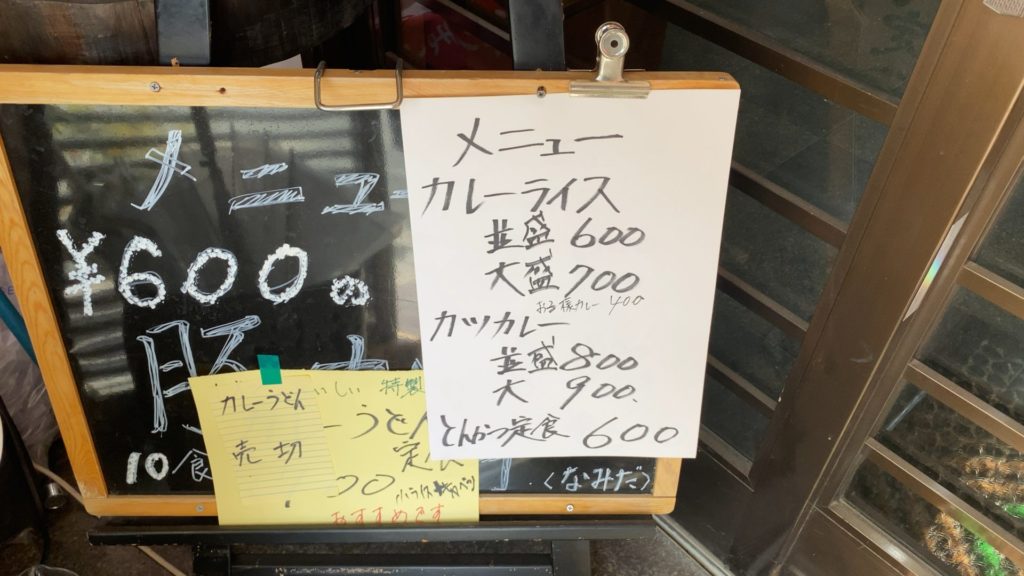 メニュー
¥600の
豚
10食
(なみだ)
メニュー
カレーライス
並盛 600
大盛 700
お子様カレー 400
カツカレー
並盛 800
大 900.
とんかつ定食 600
いしい 特製
うどん
定食
00
おすすめです
カレーうどん
売切